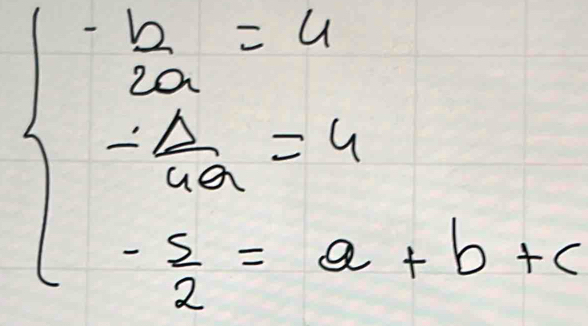 - b/2a = 4
- Δ/4a = 4
- 5/2 = a + b + c